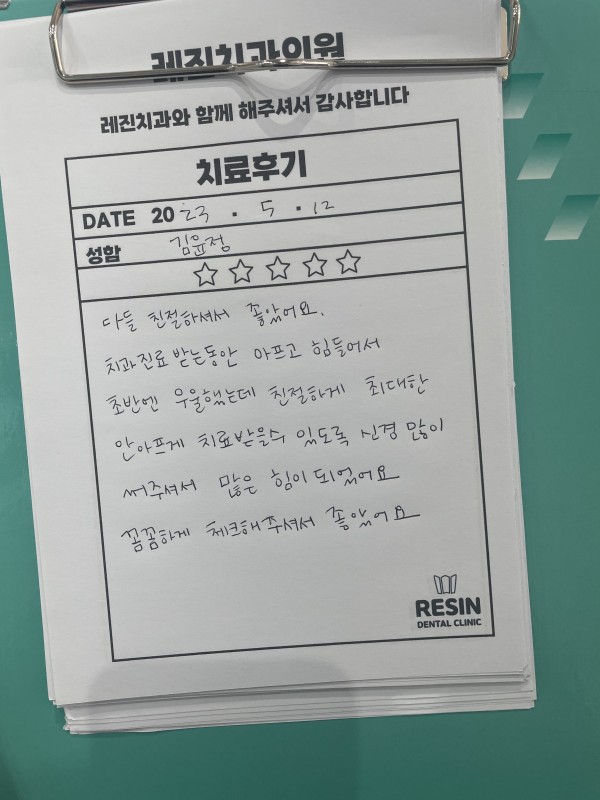 레진치과의원
레진치과와 함께 해주셔서 감사합니다
치료후기
DATE 2023 . 5 . 12
성함 김윤정
다들 친절하셔서 좋았어요.
치과진료 받는동안 아프고 힘들어서
초반엔 우울했는데 친절하게 최대한
안아프게 치료받을수 있도록 신경 많이
써주셔서 많은 힘이 되었어요
꼼꼼하게 체크해주셔서 좋았어요
RESIN
DENTAL CLINIC